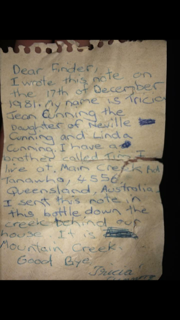 Dear Finder,
I wrote this note on
the 17th of December
1981. My name is Tricia
Jean Cunning the
daughter of Neville
Cunning and Linda
Cunning. I have a
brother called I
live at, Main Creek Rd
Tanawha, 4556
Queensland, Australia
I sent this note in
this bottle down the
creek behind our
house. It is
Mountain Creek.
Good Bye,